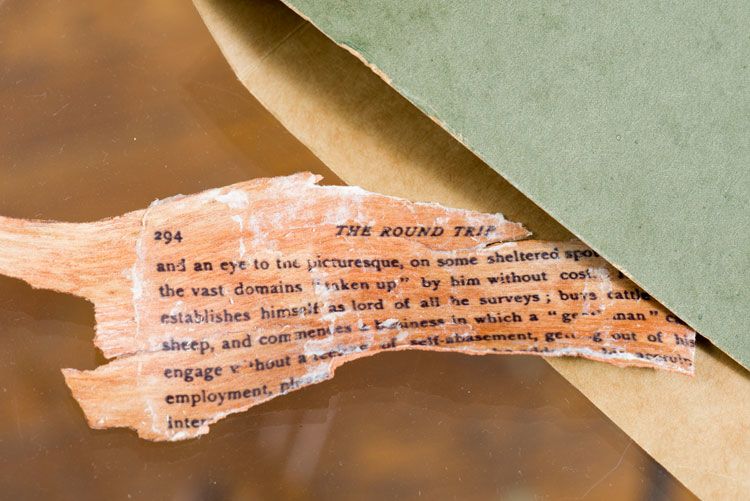 294 THE ROUND TRIP
and an eye to the picturesque, on some sheltered spot
the vast domains "taken up" by him without cost
establishes himself as lord of all he surveys; buys cattle
sheep, and commences a business in which a "gentleman" c
engage without a sense of self-abasement, getting out of his
employment,
inter